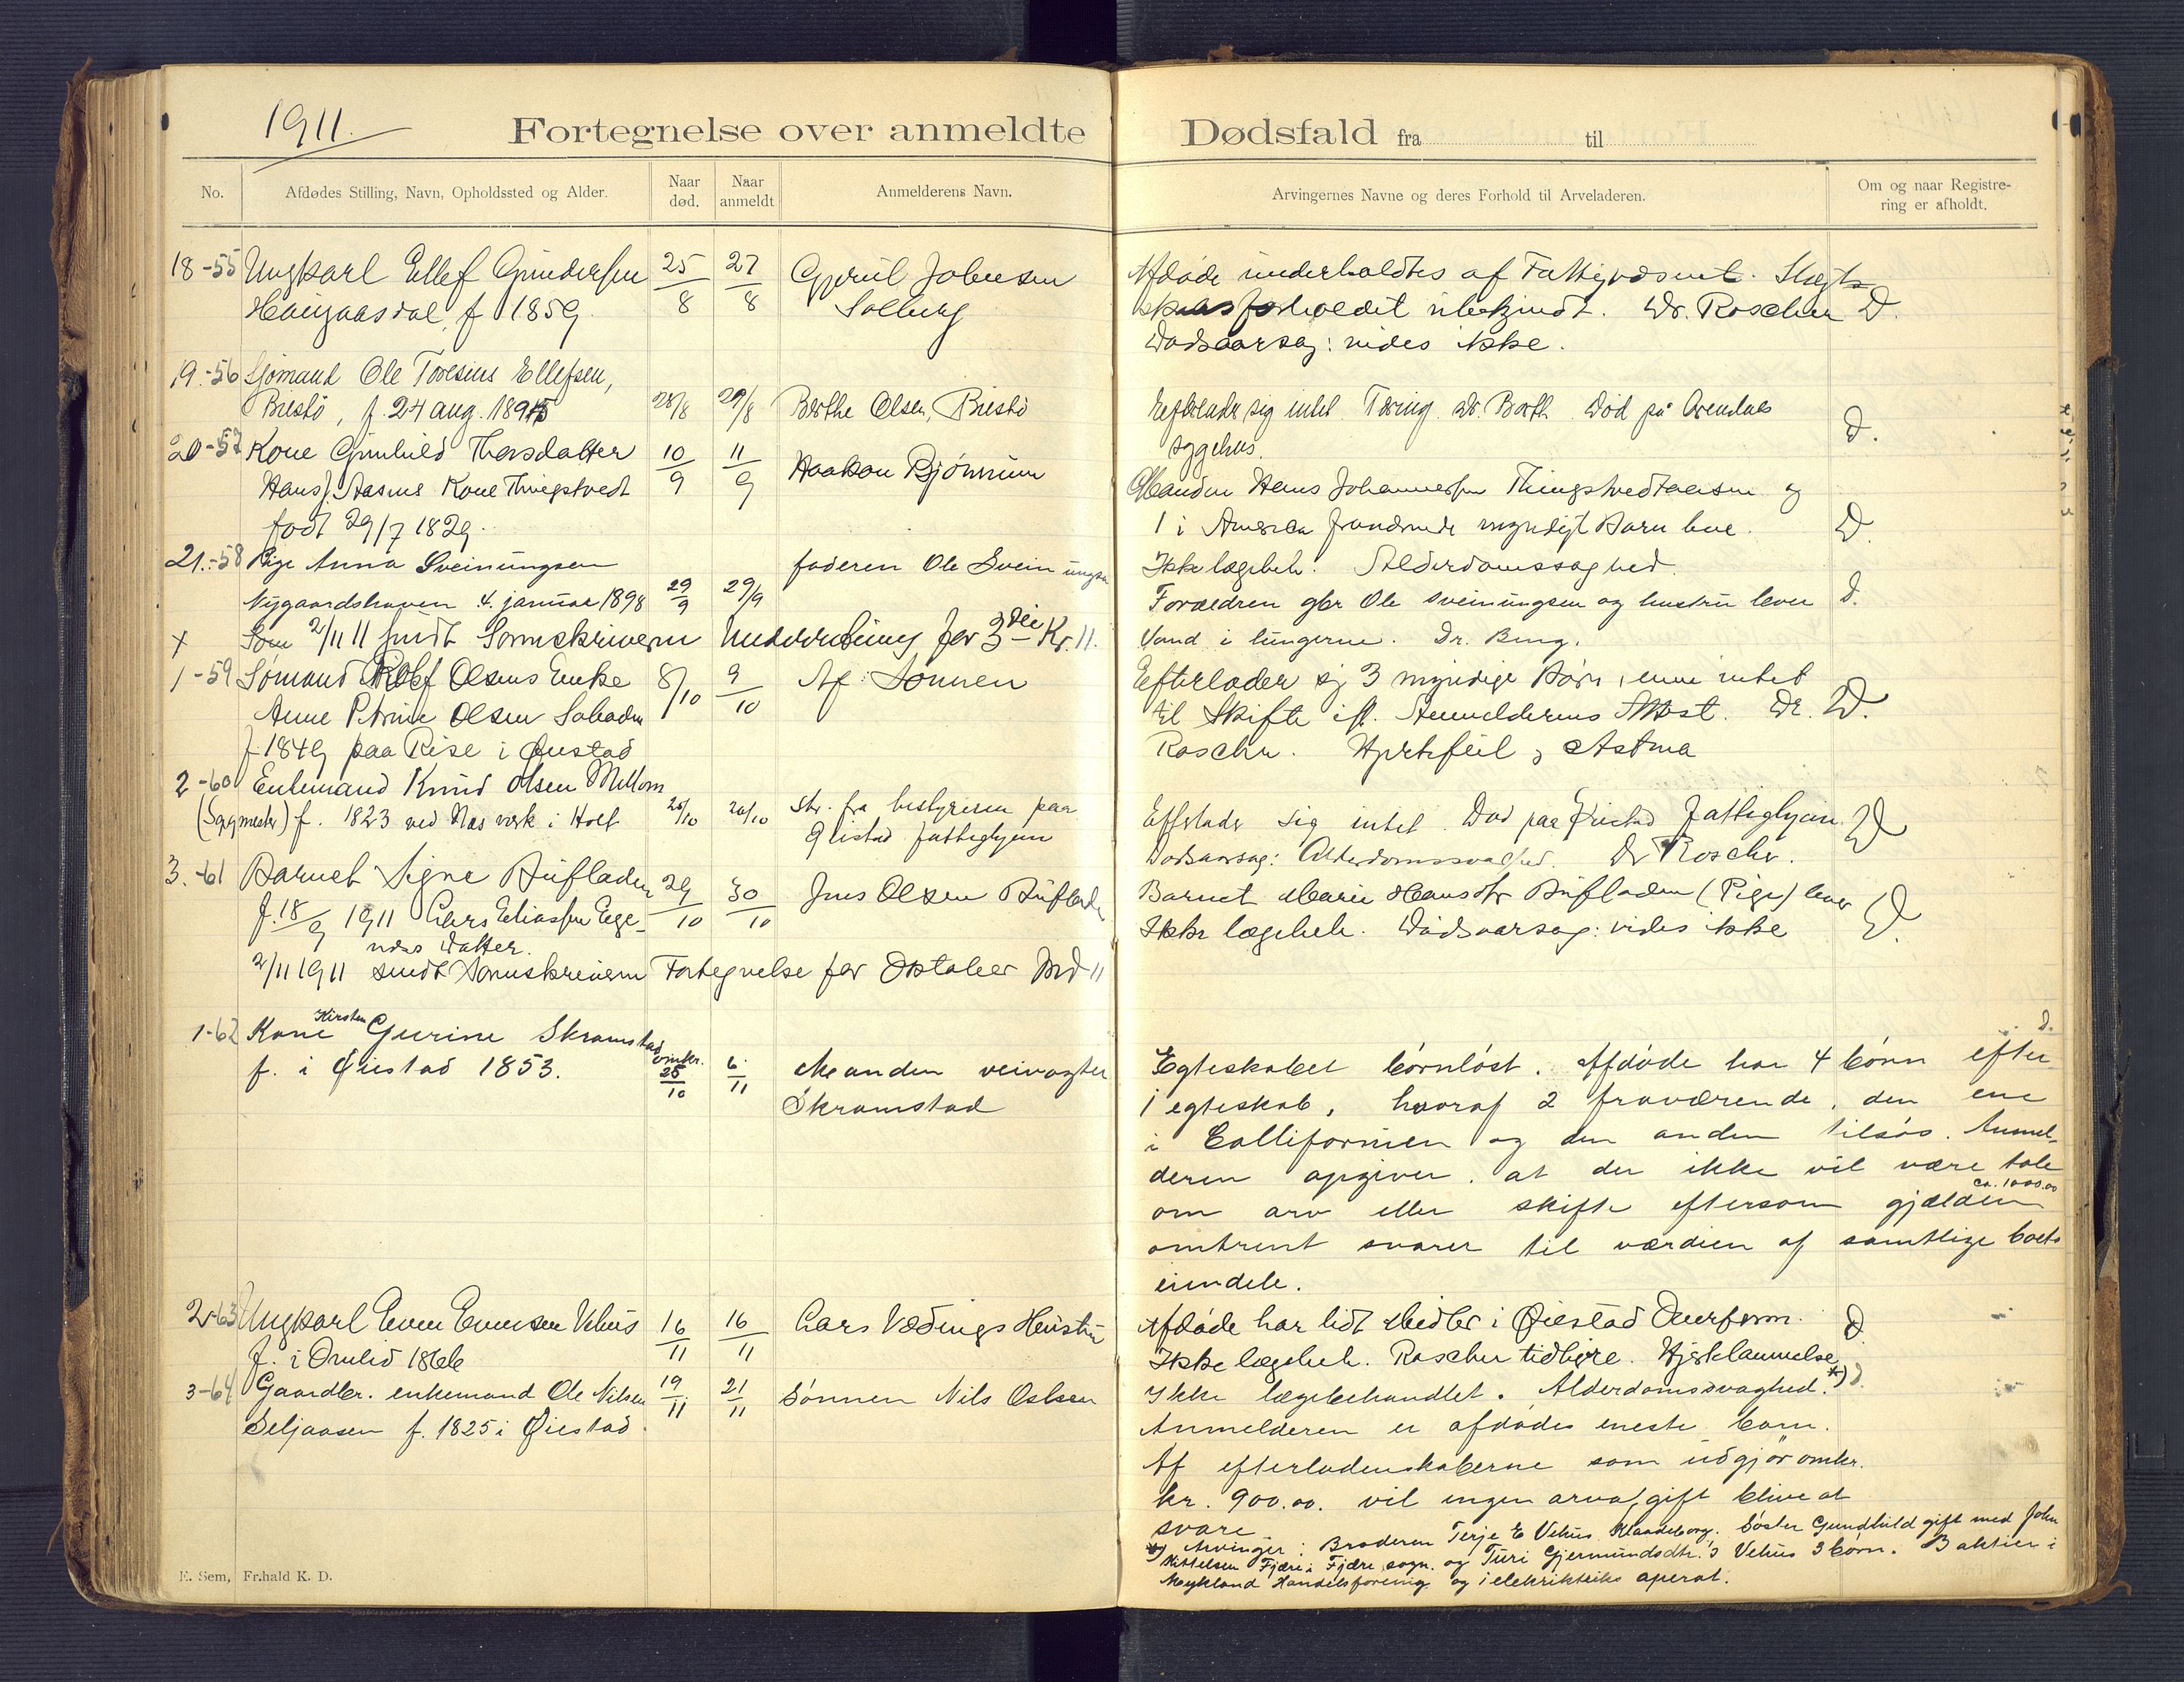 1911.
Fortegnelse over anmeldte Dødsfald fra til
No.
Afdødes Stilling, Navn, Opholdssted og Alder.
Naar død.
Naar anmeldt
Anmelderens Navn.
Arvingernes Navne og deres Forhold til Arveladeren.
Om og naar Registrering er afholdt.
18-55 Ungkarl Ellef Gundersen 25/8 27/8 Gjerul Johnsen
f 1859
Solberg
Afdøde underholdtes af Fattigvæsenet. Slægt-
skabsforholdet ubekjendt. Dr. Roscher D.
Dødsaarsag: vides ikke.
19.-56 Sjømand Ole Toresius Ellefsen,
f. 24 aug. 1895 28/8 29/8 Berthe Olsen,
Efterlader sig intet. Tæring. Dr. Borth. Død på Arendals
sygehus. D.
20-57 Kone Gunhild Thorsdatter 10/9 11/9 Haakon Bjørnum
Hans J. Aasens Kone Thingstvedt
født 29/7 1829.
Manden Hans Johannessen Thingstvedtaasen og
1 i Amerika fraværende myndigt Barn leve. D.
Ikke lægebeh. Alderdomssvaghed.
21.-58 Pige Anna Sveinungsen faderen Ole Sveinungsen
Nygaardshaven 4. januar 1898 29/9 29/9
Forældren gbr Ole Sveinungsen og hustru lever D.
Vand i lungerne. Dr. Beng.
x 2/11 11 sendt Sorenskriveren Underretning for 3die Kv. 11.
1-59 Sømand Rolf Olsens Enke 8/10 9/10 Af Sønnen
Anne Petrine Olsen
f 1849 paa Rise i Øiestad
Efterlader sig 3 myndige Børn, men intet
til Skifte ifl. Anmelderens Dr. D.
Roscher. Hjertefeil og Astma
2-60 Enkemand Knud Olsen Mellom
f. 1823 ved Næs verk i Holt 20/10 20/10 Skr. fra bestyreren paa
Øiestad fattighjem
Efterlader sig intet. Død paa Øiestad Fattighjem. D
Dødsaarsag: Alderdomssvaghed. Dr Roscher.
3.-61 Barnet Signe Bufladen 29/10 30/10 Jens Olsen Bufladen
f. 18/9 1911 Lars Eliassen Ege-
næs datter.
Barnet Marie Hansdtr Bufladen (Pige) lever
Ikke lægebeh. Dødsaarsag: vides ikke D.
2/11 1911 sendt Sorenskriveren Fortegnelse for Oktober Md 11
1-62 Kone Kirsten Gurine Skramstad omkr.
f. i Øiestad 1853. 25/10 6/11 Manden veivogter
Skramstad
D.
Egteskabet børnløst. Afdøde har 4 børn efter
1 egteskab, hvoraf 2 fraværende, den ene
i Calliformien og den anden tilsøs. Anmel-
deren opgiver, at der ikke vil være tale
om arv eller skifte eftersom gjælden ca. 1000.00
omtrent svarer til værdien af samtlige boets
eiendele.
2-63 Ungkarl Even Evensen Vehus 16/11 16/11 Lars Vedings Hustru
f. i Omlid 1866
Afdøde har lidt Midler i Øiestad Overform. D
Ikke lægebeh. Roscher tidligere. Hjertelammelse *)
3-64 Gaardbr. enkemand Ole Nilsen 19/11 21/11 Sønnen Nils Olsen
Seljaasen f. 1825 i Øiestad.
Ikke lægebehandlet. Alderdomssvaghed. D.
Anmelderen er afdødes eneste barn.
Af efterladenskaberne som udgjør omkr.
kr. 900.00. vil ingen arveafgift blive at
svare
*) Arvinger: Broderen Terje E Vehus Klaadeborg. Søster Gundhild gift med John
Kittelsen Fjære i Fjære sogn. og Turi Gjermundsdtr. Vehus 3 børn. 3 aktier i
Mykland Handelsforening og i elektriktriks aperat.
E. Sem, Fr.hald K. D.